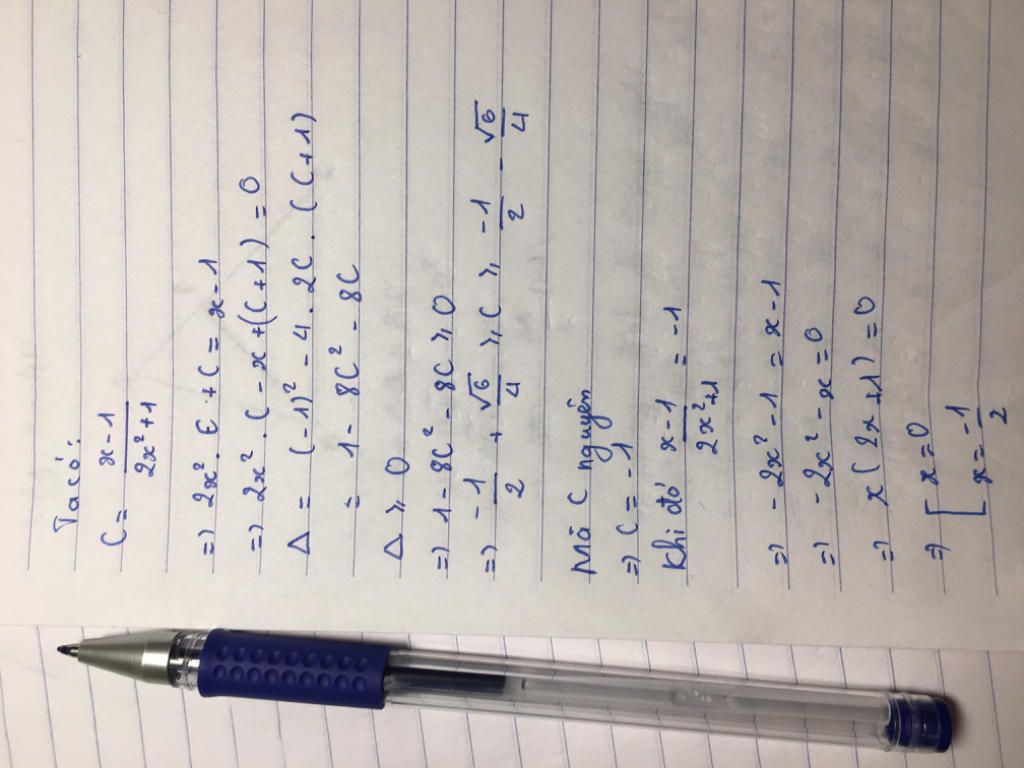 Ta có:
C = \frac{x-1}{2x²+1}
=> 2x². C + C = x - 1
=> 2x². C - x + (C+1) = 0
Δ = (-1)² - 4. 2C. (C+1)
= 1 - 8C² - 8C
Δ ⩾ 0
=> 1 - 8C² - 8C ⩾ 0
=> \frac{-1}{2} + \frac{√6}{4} ⩾ C ⩾ \frac{-1}{2} - \frac{√6}{4}
Mà C nguyên
=> C = -1
Khi đó \frac{x-1}{2x²+1} = -1
=> -2x² - 1 = x - 1
=> -2x² - x = 0
=> x(2x+1) = 0
=> [ x = 0
x = \frac{-1}{2}